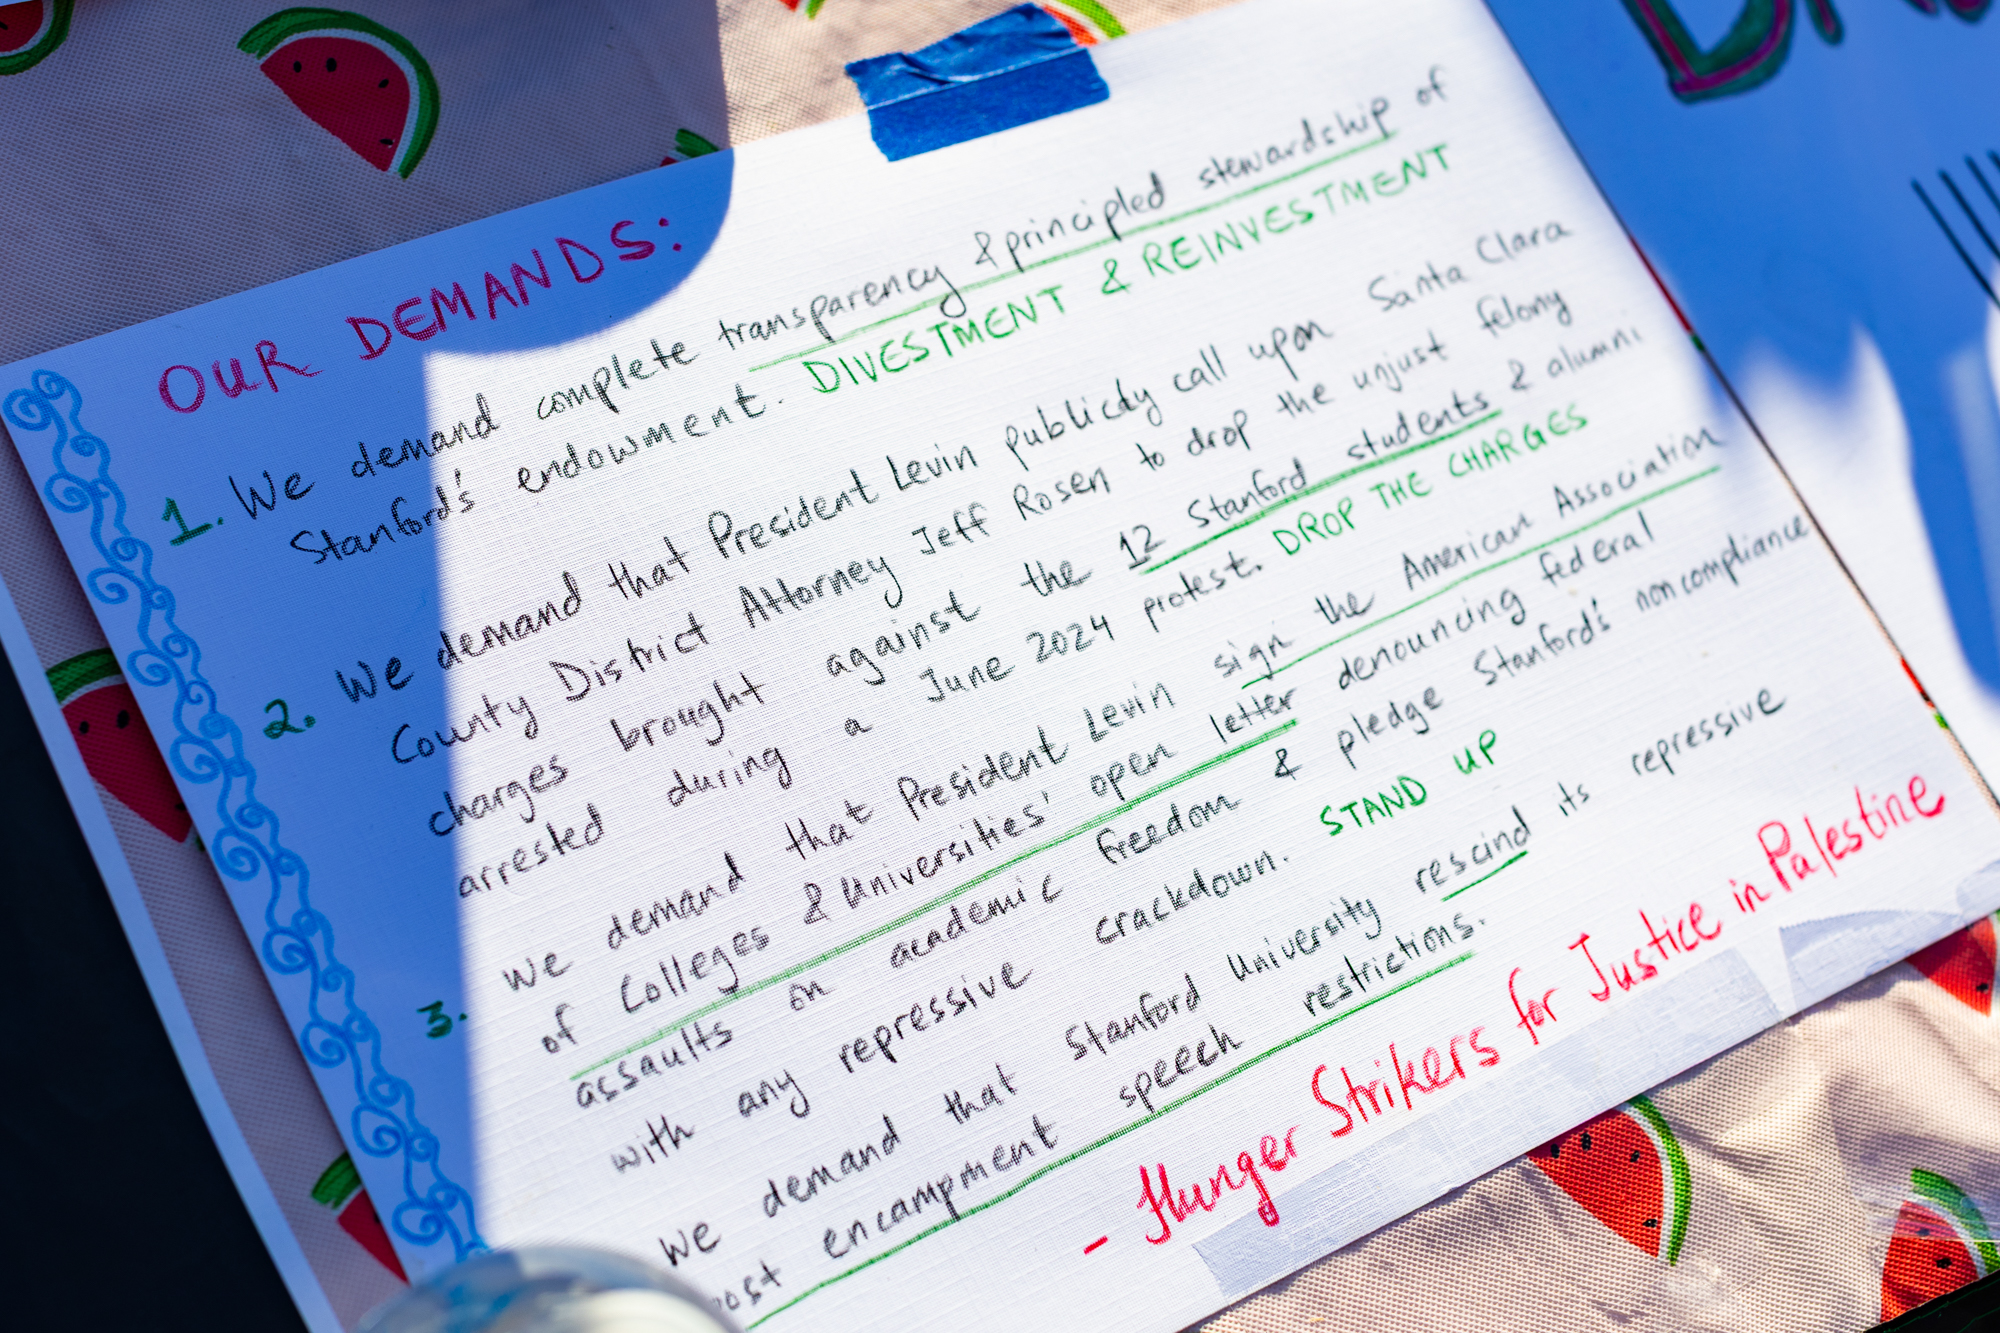 OUR DEMANDS:
1. We demand complete transparency & principled stewardship of
Stanford's endowment. DIVESTMENT & REINVESTMENT
2. We demand that President Levin publicly call upon Santa Clara
County District Attorney Jeff Rosen to drop the unjust felony
charges brought against the 12 Stanford students & alumni
arrested during a June 2024 protest. DROP THE CHARGES
3. We demand that President Levin sign the American Association
of Colleges & Universities' open letter denouncing federal
assaults on academic freedom & pledge Stanford's noncompliance
with any repressive crackdown. STAND UP
We demand that Stanford University rescind its repressive
post encampment speech restrictions.
- Hunger Strikers for Justice in Palestine